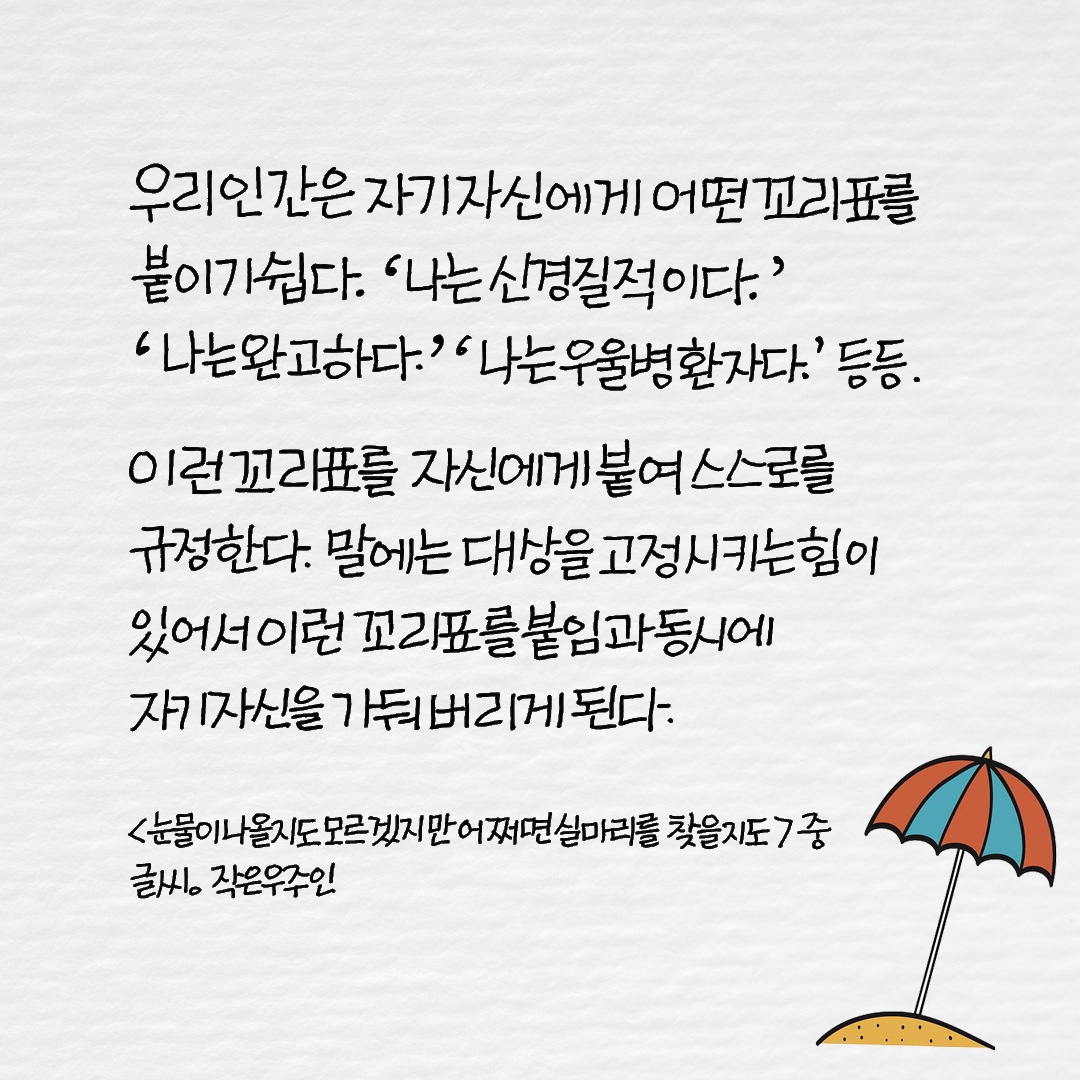 우리 인간은 자기 자신에게 어떤 꼬리표를
붙이기 쉽다. ‘나는 신경질적이다.’
‘나는 완고하다.’ ‘나는 우울병 환자다.’ 등등.
이런 꼬리표를 자신에게 붙여 스스로를
규정한다. 말에는 대상을 고정시키는 힘이
있어서 이런 꼬리표를 붙임과 동시에
자기 자신을 가둬 버리게 된다.
<눈물이 나올지도 모르겠지만 어쩌면 실마리를 찾을지도> 중
글씨。 작은우주인